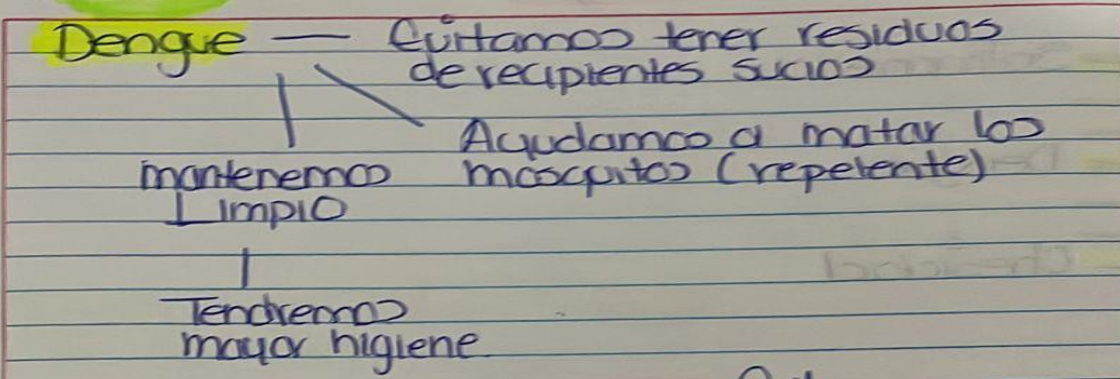 Dengue — Evitamos tener residuos
de recipientes sucios
Ayudamos a matar los
mosquitos (repelente)
mantenemos
Limpio
Tendremos
mayor higiene